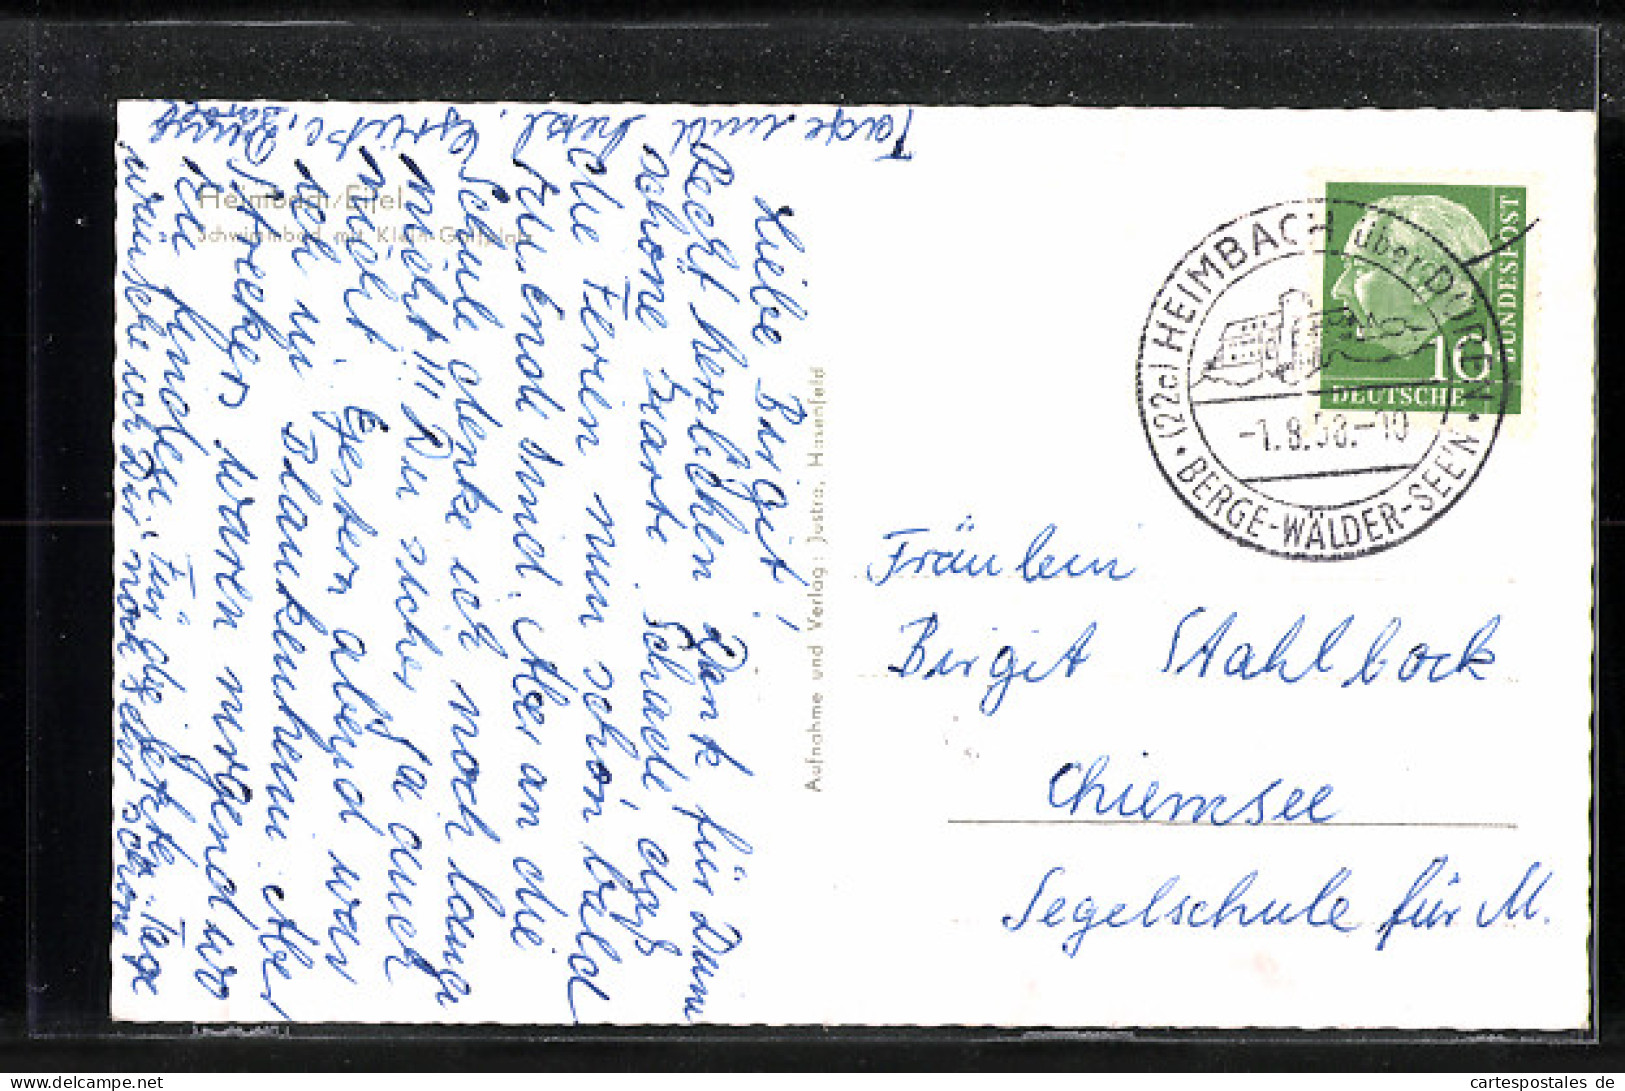 Heimbach/Eifel
Schwimmbad mit Klein-Golfplatz
Liebe Birgit!
Recht herzlichen Dank für Deine
schöne Karte. Schade daß
die Ferien nun schon bald
zu Ende sind. Aber an die
Schule denke ich noch lange
nicht!!! Du sicher ja auch
nicht. Gestern abend war
ich in Blankenheim. Aber
Streker waren nirgend wo
zu finden. Für die letzten Tage
wünsche ich Dir noch sehr schöne
Tage und herzl. Grüße,
Aufnahme und Verlag: Justra, Hasenfeld
(22c) HEIMBACH über DÜREN
-1.8.58.-10
BERGE-WÄLDER-SEE'N
DEUTSCHE
BUNDESPOST
10
Fräulein
Birgit Stahlbock
Chiemsee
Segelschule für M.
www.cartespostales.de